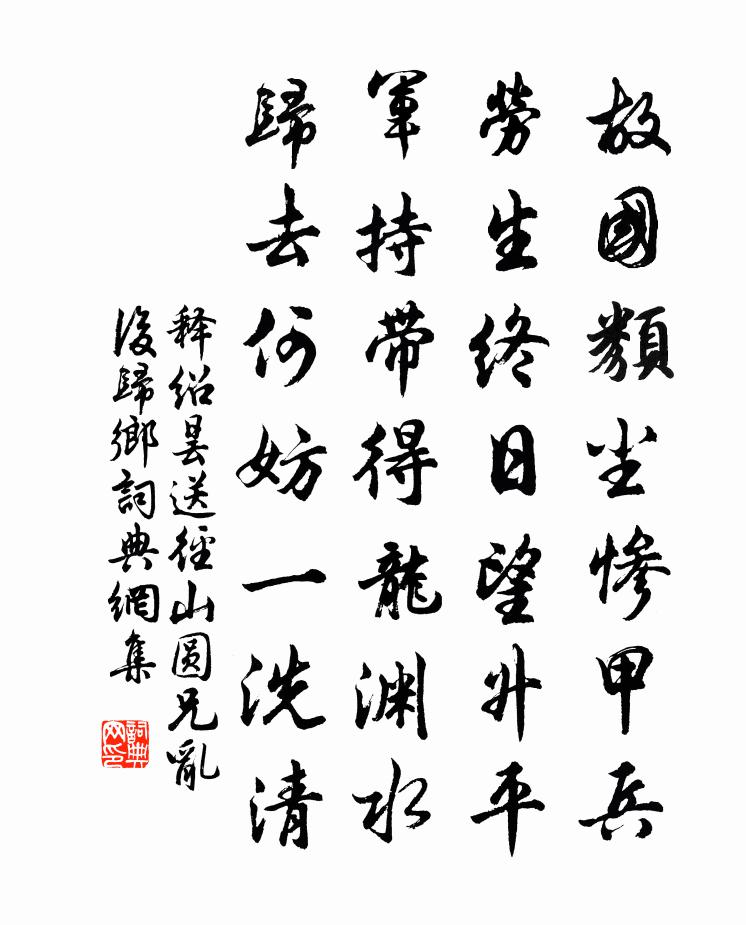 故國類尘慘甲兵
勞生終日望升平
軍持帶得龍渊水
歸去何妨一洗清
释绍昙送徑山圓兄亂
後歸鄉詞典網集
詞典
网印